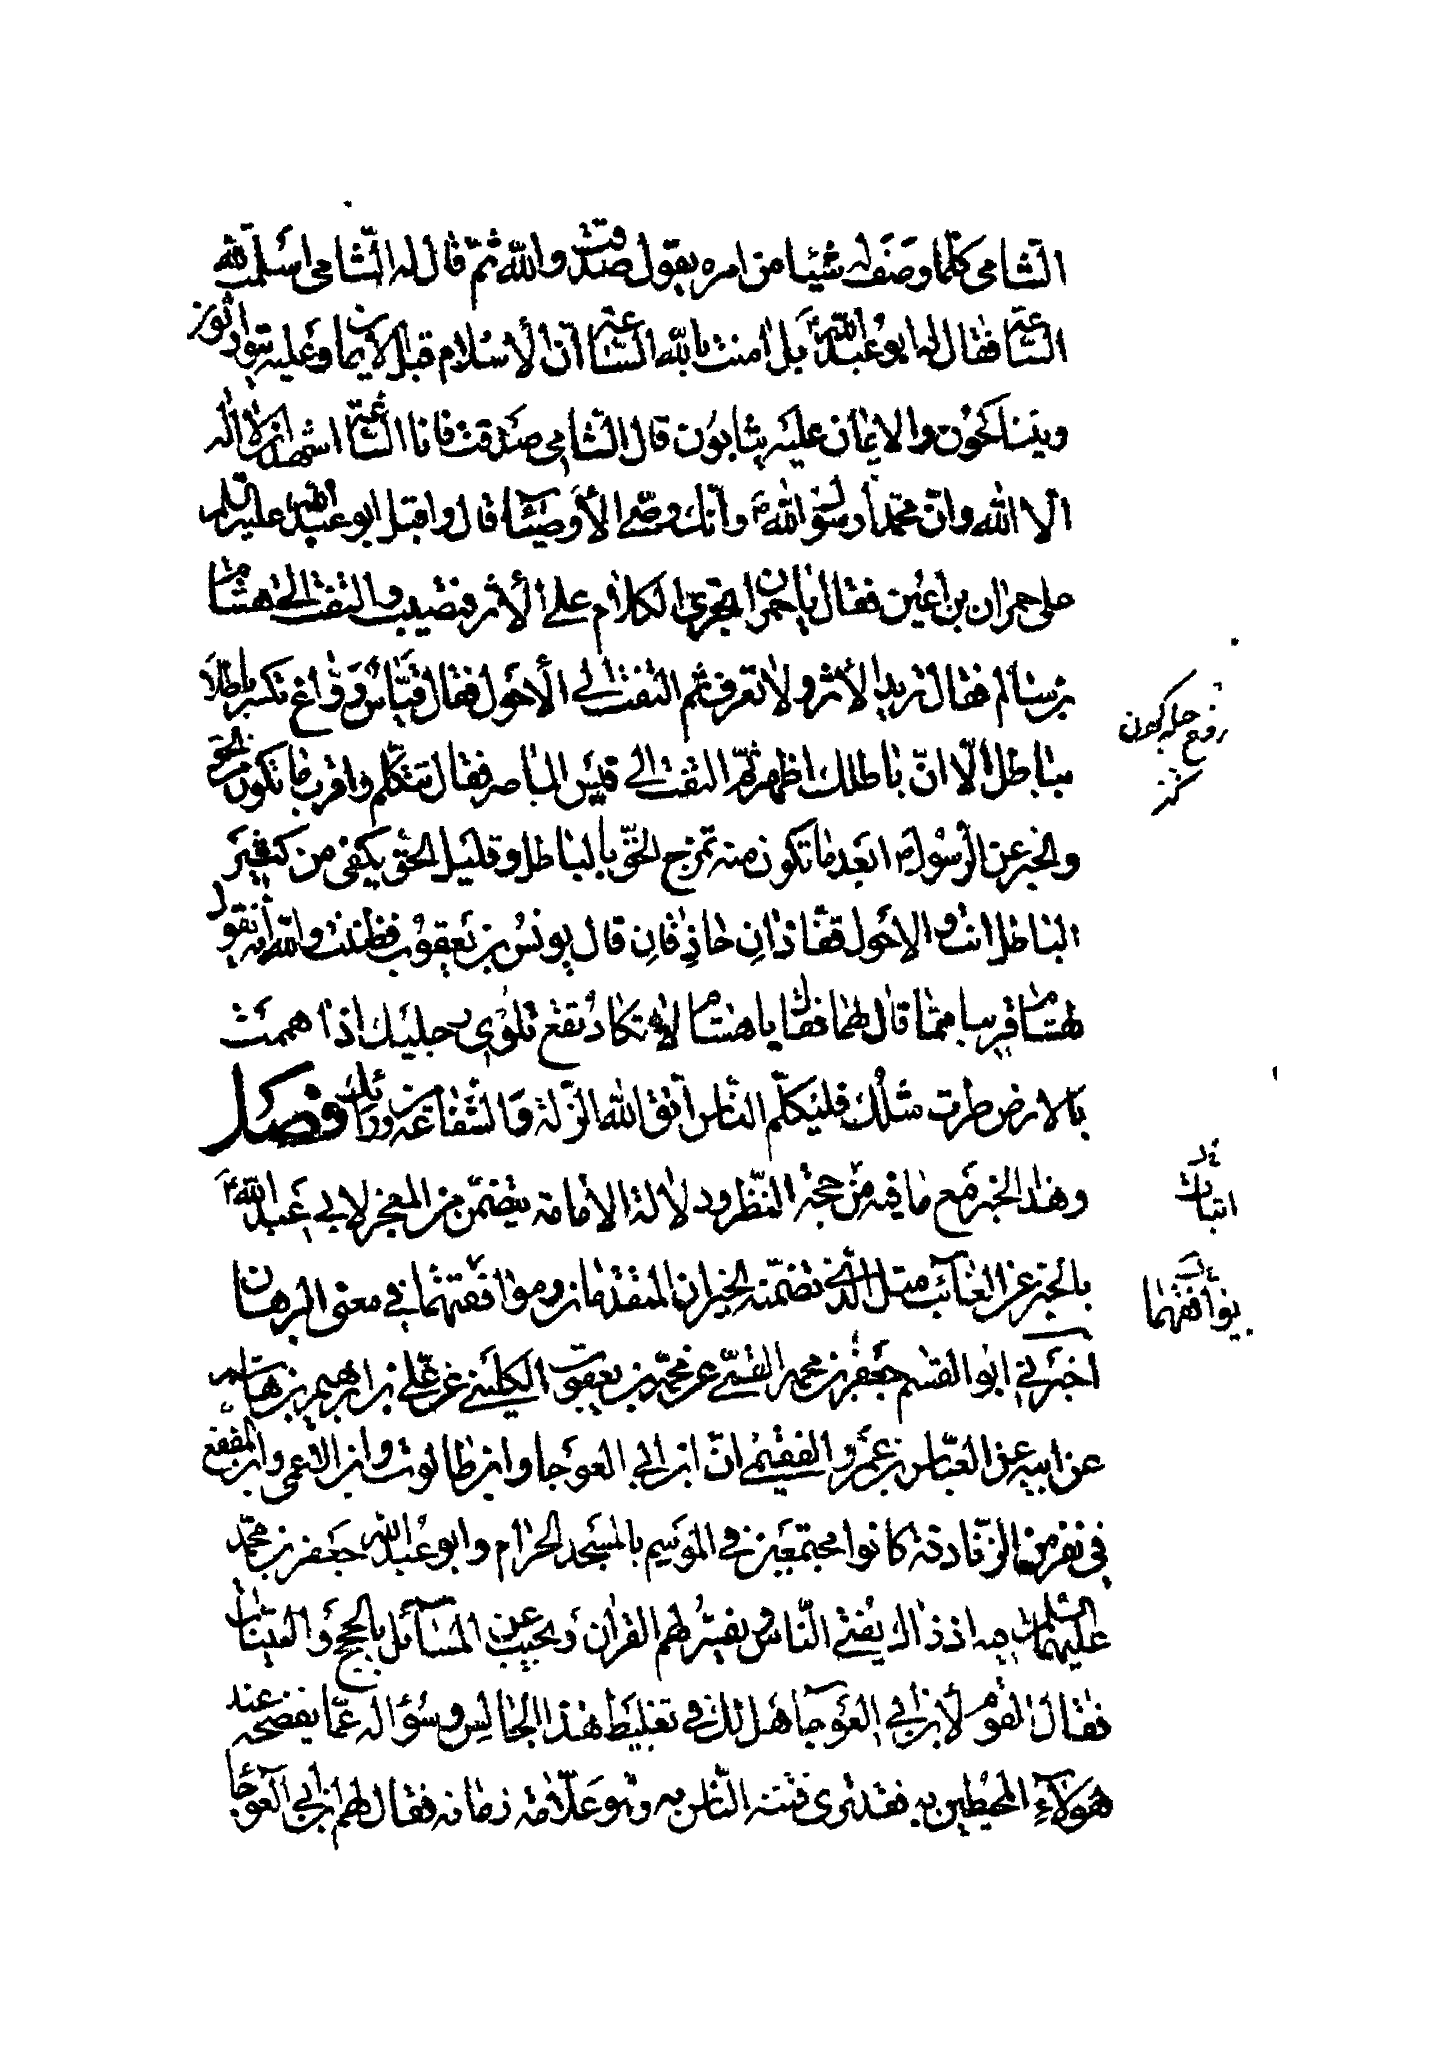 الشامي كلما وصف له شيئا من امره يقول صدقت والله ثم قال له الشامي اسلمت لله
الساعة فقال له ابو عبد الله ع بل امنت بالله الساعة ان الاسلام قبل الايمان وعليه يتوارثون
ويتناكحون والايمان عليه يثابون قال الشامي صدقت فانا الساعة اشهد ان لا اله
الا الله وان محمدا رسول الله ص وانك وصي الاوصياء قال واقبل ابو عبد الله عليه السلم
على حمران بن اعين فقال يا حمران تجري الكلام على الاثر فتصيب والتفت الى هشام
بن سالم فقال تريد الاثر ولا تعرف ثم التفت الى الاحول فقال قياس رواغ تكسر باطلا
بباطل الا ان باطلك اظهر ثم التفت الى قيس الماصر فقال تتكلم واقرب ما تكون من الحق
والخبر عن الرسول ص ابعد ما تكون منه تمزج الحق بالباطل وقليل الحق يكفي من كثير
الباطل انت والاحول قفازان حاذقان قال يونس بن يعقوب فظننت والله انه يقول
لهشام قريبا مما قال لهما فقال يا هشام لا تكاد تقع تلوي رجليك اذا هممت
بالارض طرت مثلك فليكلم الناس اتق الله الزلة والشفاعة من ورائك فصل
وهذا الخبر مع ما فيه من حجة النظر ودلالة الامامة يتضمن من المعجز لابي عبد الله ع
بالخبر عن الغائب مثل الذي تضمنه الخبران المتقدمان وموافقتهما في معنى البرهان
اخبرني ابو القسم جعفر بن محمد القمي عن محمد بن يعقوب الكليني عن علي بن ابرهيم بن هاشم
عن ابيه عن العباس بن عمرو الفقيمي ان ابن ابي العوجا وابن طالوت وابن الاعمى وابن المقفع
في نفر من الزنادقة كانوا مجتمعين في الموسم بالمسجد الحرام وابو عبد الله جعفر بن محمد
عليهما السلم فيه اذ ذاك يفتي الناس ويفسر لهم القران ويجيب عن المسائل بالحجج والبينات
فقال القوم لابن ابي العوجا هل لك في تغليط هذا الجالس وسؤاله عما يفضحه عند
هولاء المحيطين به فقد ترى فتنة الناس به وهو علامة زمانه فقال لهم ابن ابي العوجا
اثبات
يوافقهما